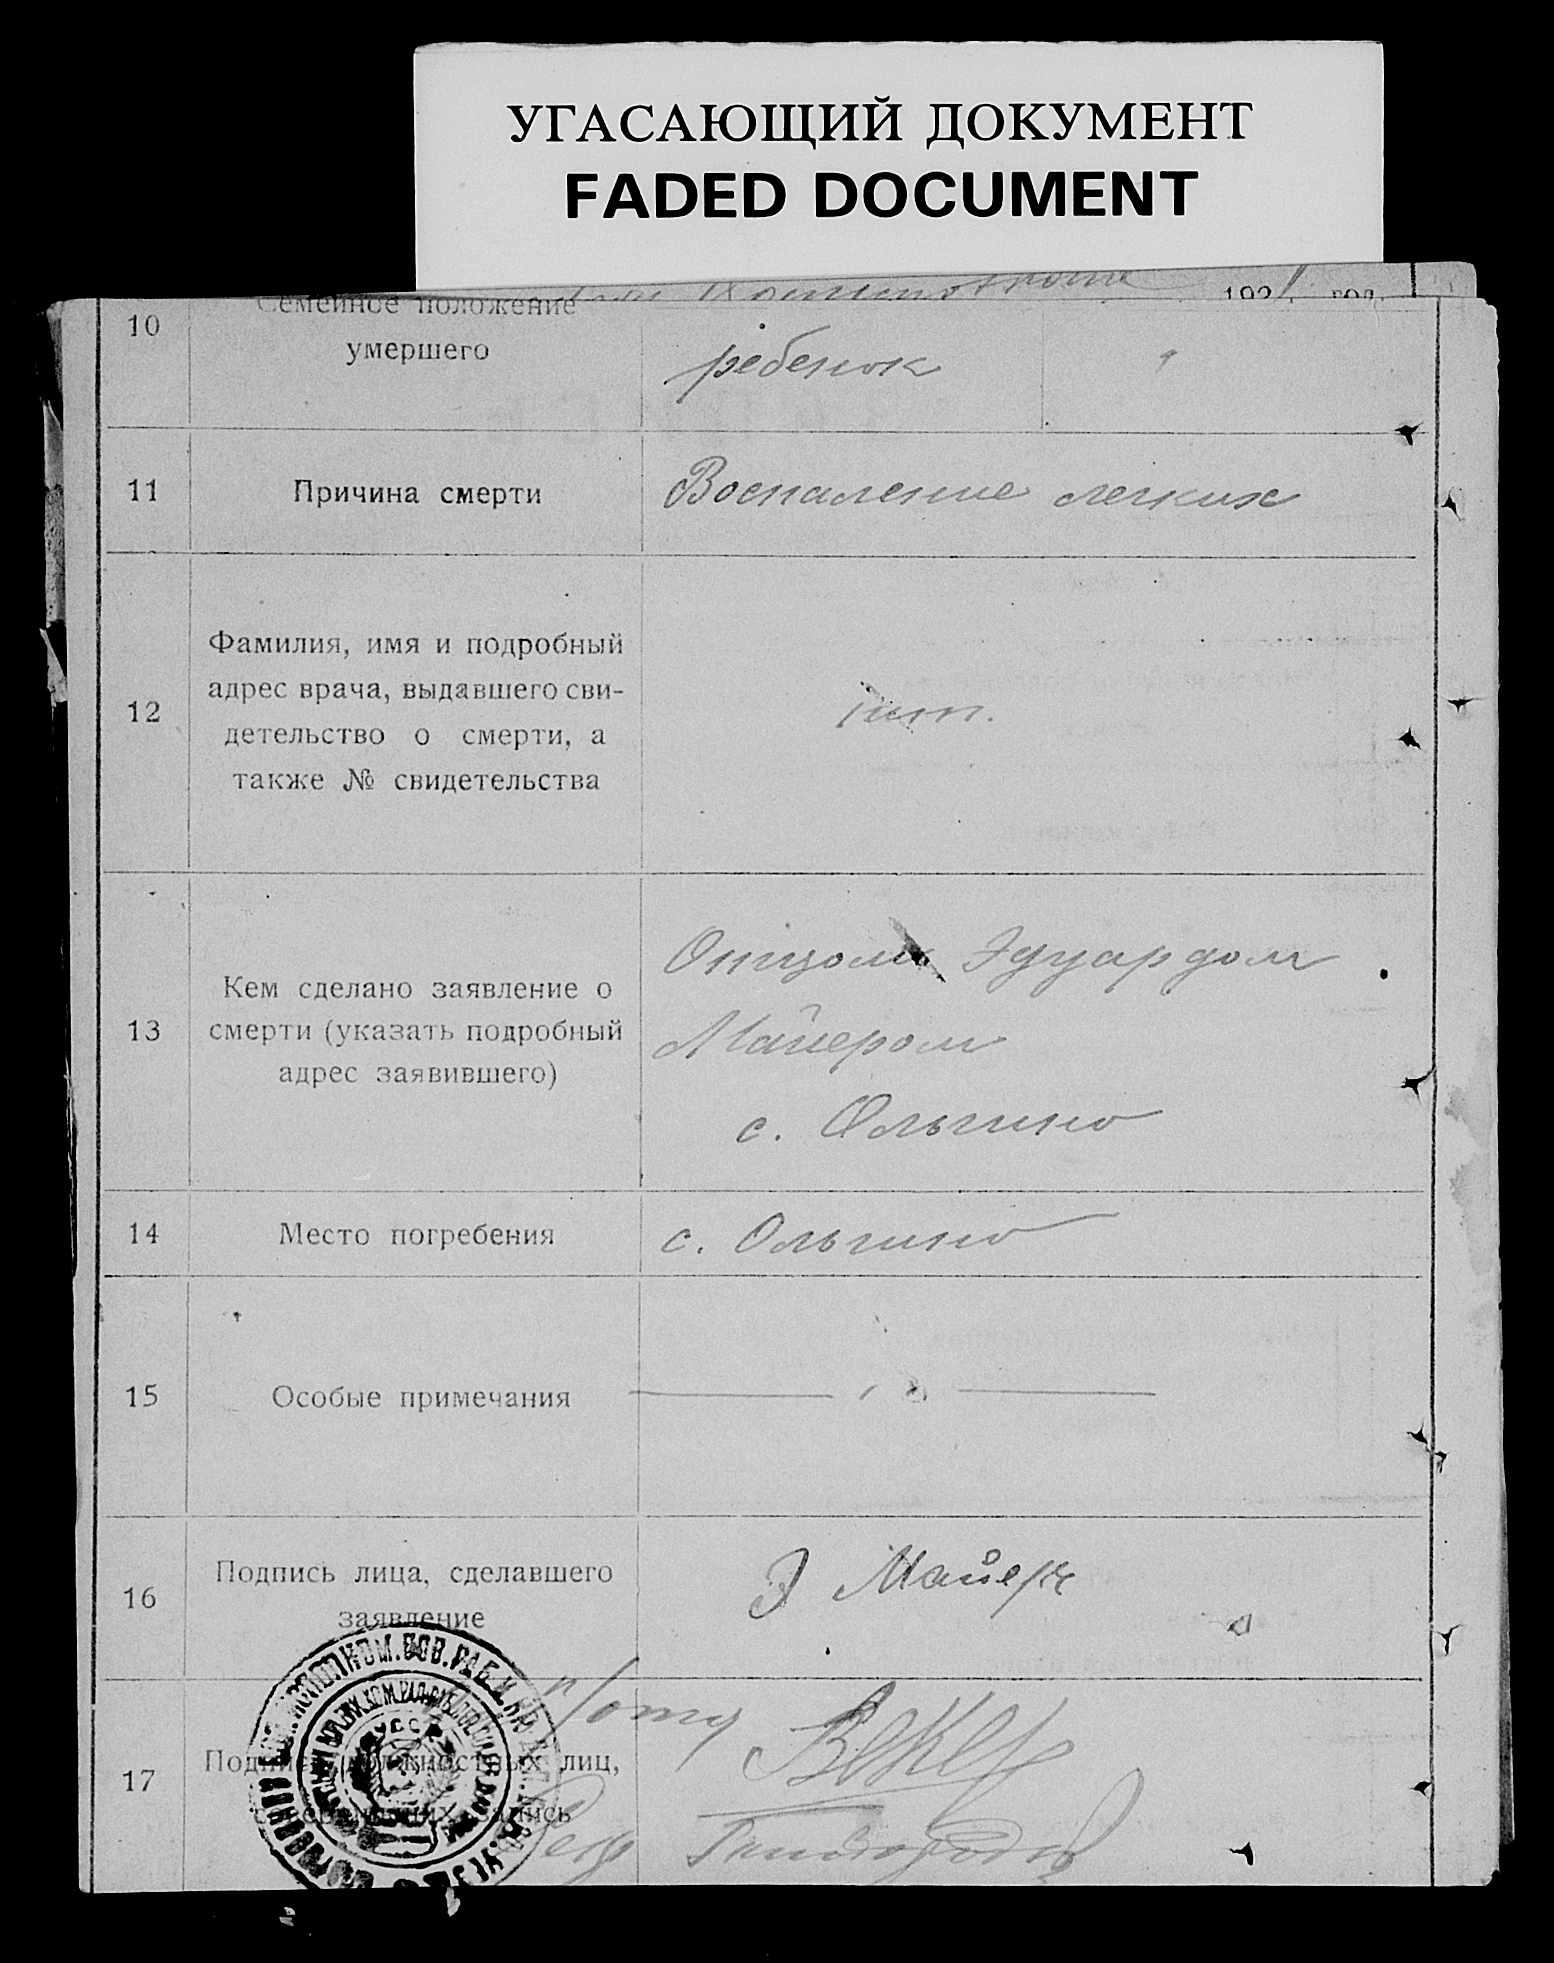 УГАСАЮЩИЙ ДОКУМЕНТ
FADED DOCUMENT
192 год.
10 Семейное положение
умершего
ребенок
11 Причина смерти Воспаление легких
12 Фамилия, имя и подробный
адрес врача, выдавшего сви-
детельство о смерти, а
также № свидетельства
нет.
13 Кем сделано заявление о
смерти (указать подробный
адрес заявившего)
Отцом Эдуардом
Майером
с. Ольгино
14 Место погребения с. Ольгино
15 Особые примечания
16 Подпись лица, сделавшего
заявление
Э Майер
17 Подписи должностных лиц,
совершивших запись